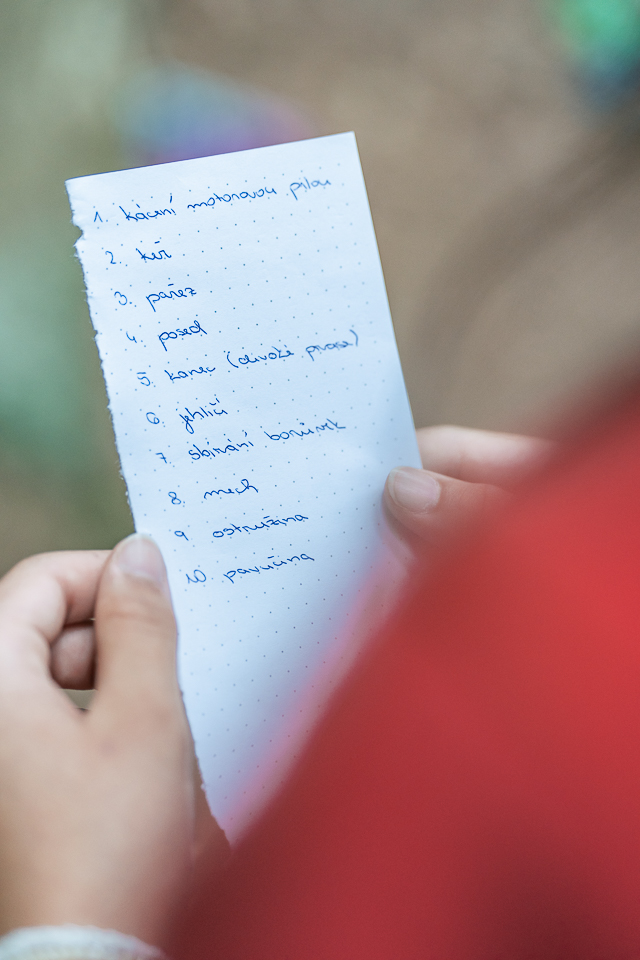 1. kácení motorovou pilou
2. keř
3. pařez
4. posed
5. kanec (divoké prase)
6. jehličí
7. sbírání borůvek
8. mech
9 ostružina
10 pavučina